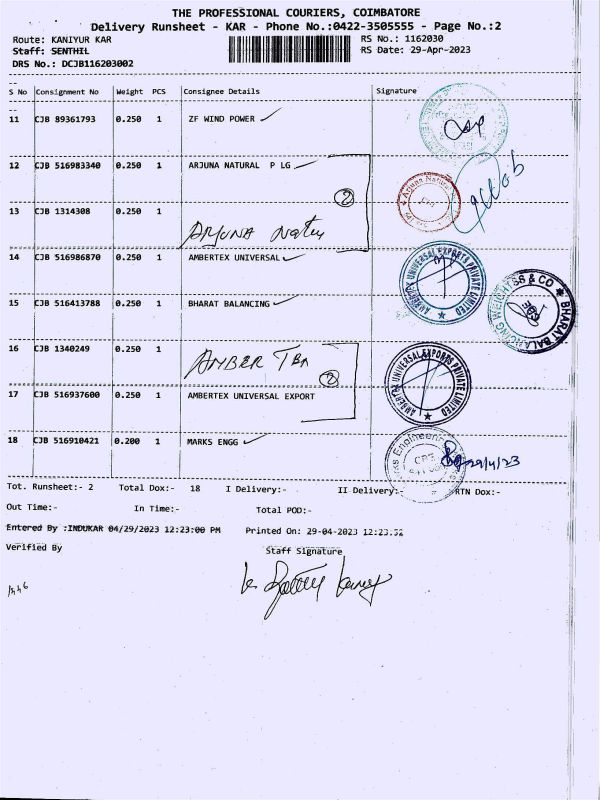 THE PROFESSIONAL COURIERS, COIMBATORE
Delivery Runsheet - KAR - Phone No.:0422-3505555 - Page No.:2
Route: KANIYUR KAR RS No.: 1162030
Staff: SENTHIL RS Date: 29-Apr-2023
DRS No.: DCJB116203002
S No Consignment No Weight PCS Consignee Details Signature
11 CJB 89361793 0.250 1 ZF WIND POWER
12 CJB 516983340 0.250 1 ARJUNA NATURAL P LG
2
13 CJB 1314308 0.250 1
ARJUNA Natu
14 CJB 516986870 0.250 1 AMBERTEX UNIVERSAL
AMBERTEX UNIVERSAL EXPORTS PRIVATE LIMITED
15 CJB 516413788 0.250 1 BHARAT BALANCING
BHARAT BALANCING WEIGHTSS & CO
16 CJB 1340249 0.250 1
AMBER
2
AMBERTEX UNIVERSAL EXPORTS PRIVATE LIMITED
17 CJB 516937600 0.250 1 AMBERTEX UNIVERSAL EXPORT
18 CJB 516910421 0.200 1 MARKS ENGG
29/4/23
Tot. Runsheet:- 2 Total Dox:- 18 I Delivery:- II Delivery:- RTN Dox:-
Out Time:- In Time:- Total POD:-
Entered By :INDUKAR 04/29/2023 12:23:00 PM Printed On: 29-04-2023 12:23:52
Verified By Staff Signature